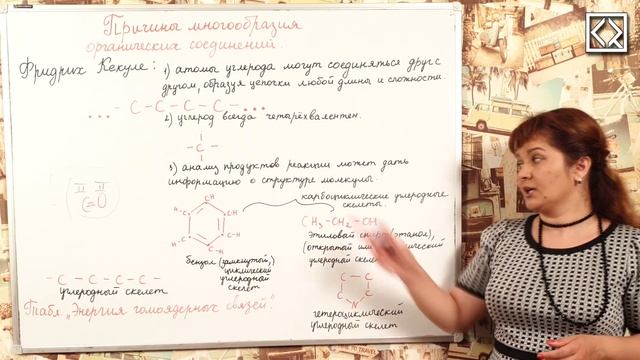 Причины многообразия
органических соединений.
Фридрих Кекуле:
1) атомы углерода могут соединяться друг с
другом, образуя цепочки любой длины и сложности.
... - C - C - C - C - ...
2) углерод всегда четырёхвалентен.
- C -
3) анализ продуктов реакции может дать
информацию о структуре молекулы
карбоциклические углеродные
скелеты.
CH
CH
C-H
C-H
CH₃ - CH₂ -
этиловый спирт (этанол),
(открытый
углеродный
бензол (замкнутый,
циклический
углеродный
скелет
II II
C=O
- C - C - C - C - C -
углеродный скелет
Табл. „Энергия гомоядерных связей"
C - C
C C
N
гетероциклический
углеродный скелет
TO TRAVEL